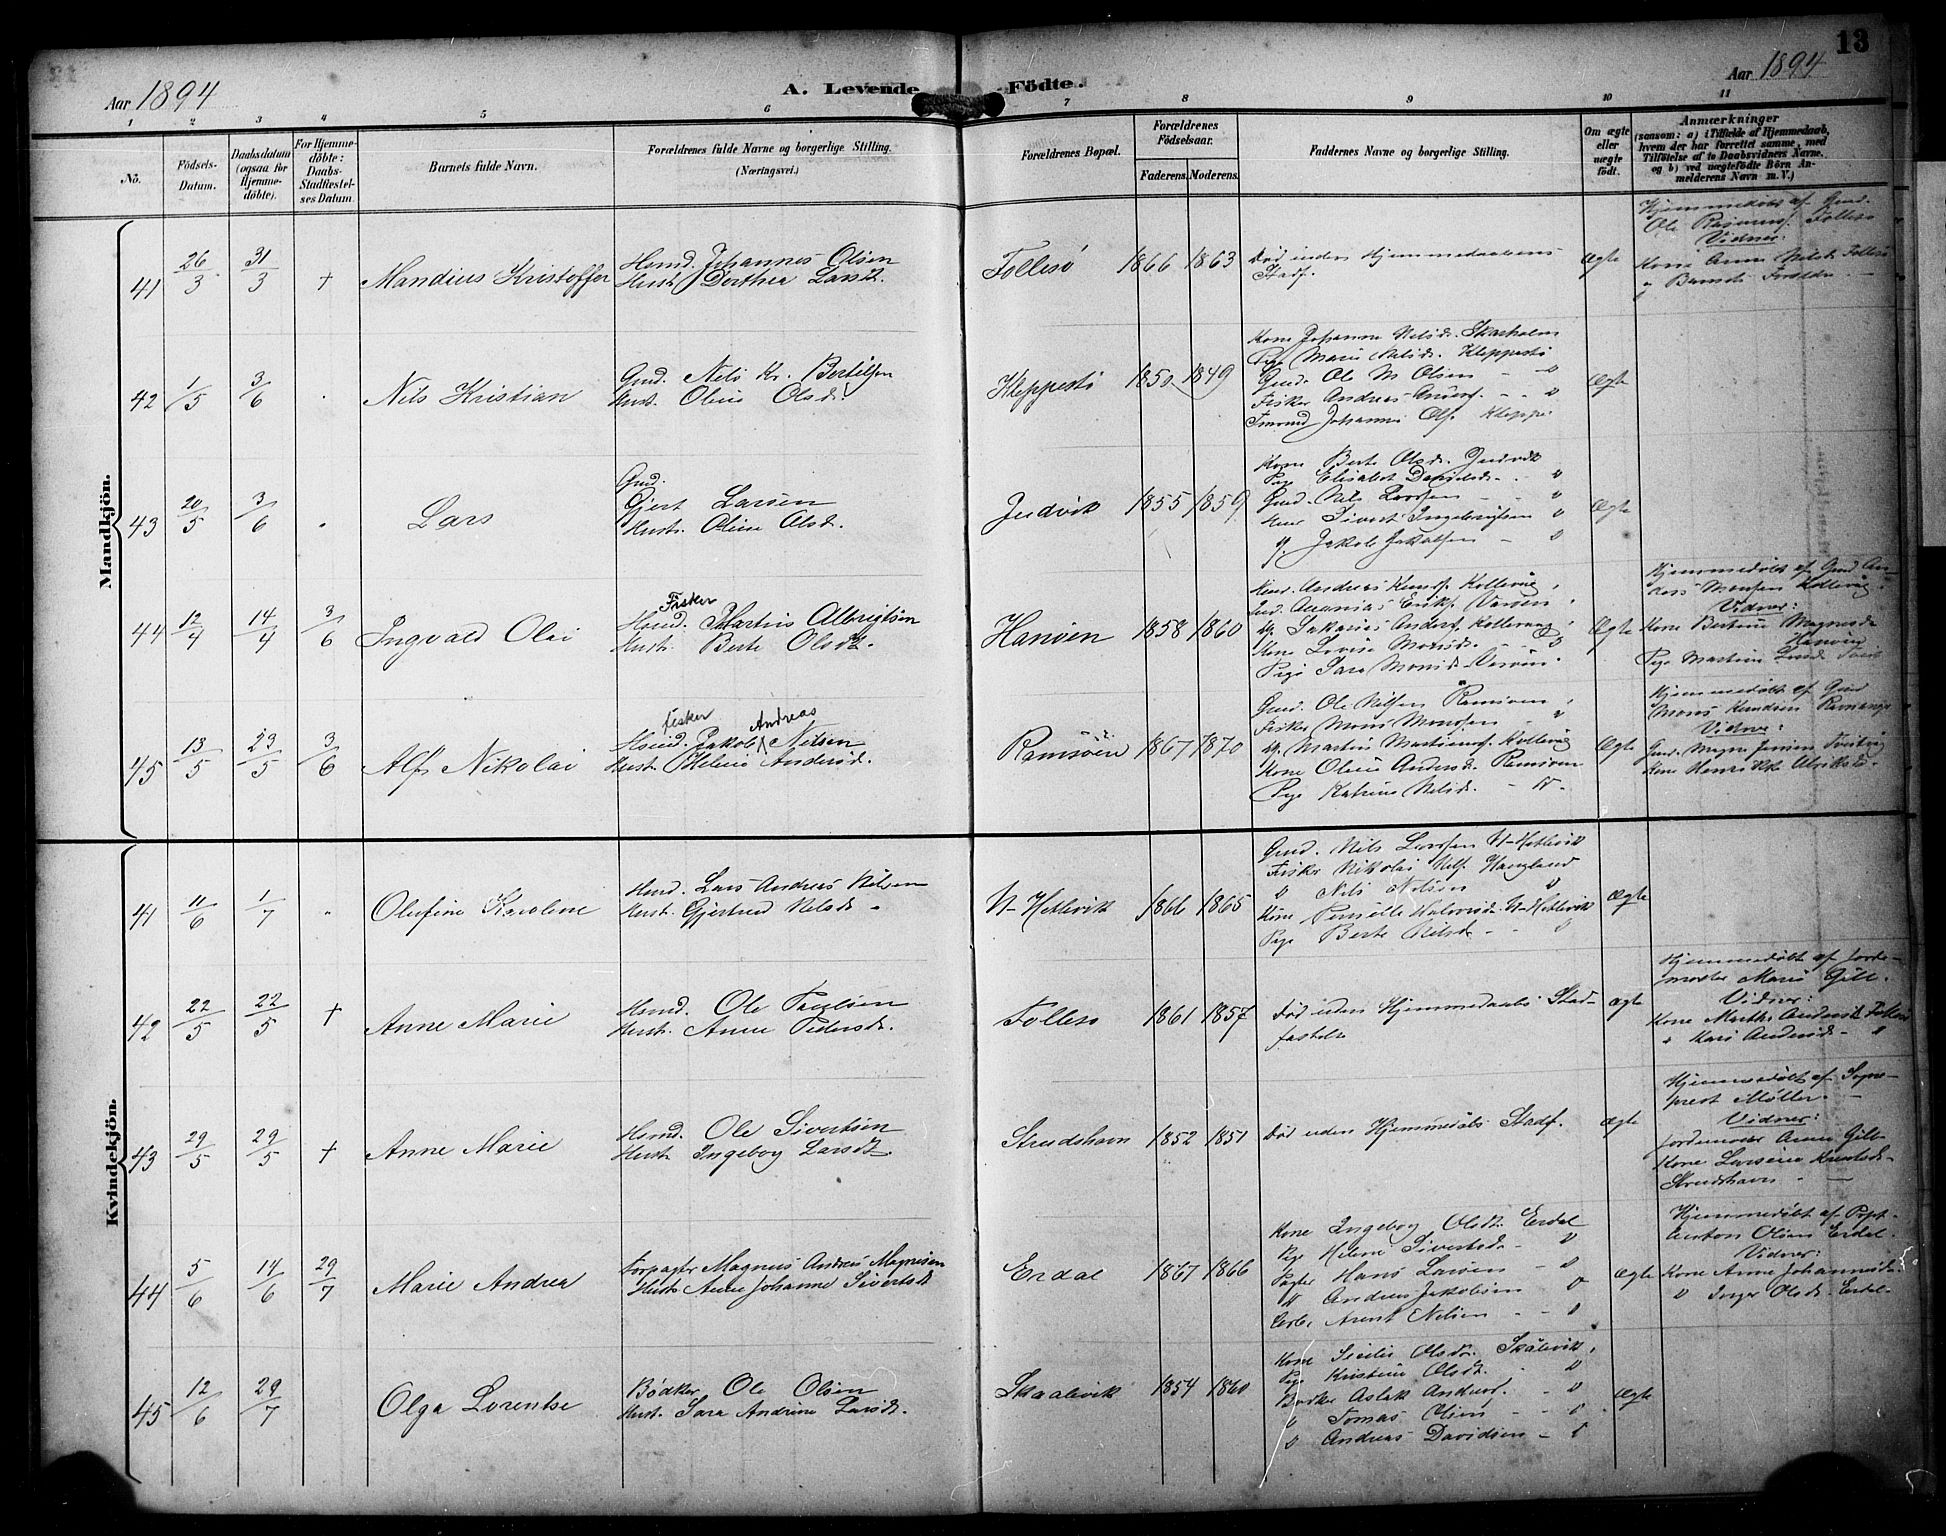 13
Aar 1894
A. Levende Födte.
Aar 1894
1 2 3 4 5 6 7 8 9 10 11
No.
Födsels-Datum.
Daabsdatum (ogsaa for Hjemme-döbte).
For Hjemme-döbte: Daabs-Stadfæstel-ses Datum.
Barnets fulde Navn.
Forældrenes fulde Navne og borgerlige Stilling. (Næringsvei.)
Forældrenes Bopæl.
Forældrenes Födselsaar.
Faderens. Moderens.
Faddernes Navne og borgerlige Stilling.
Om ægte eller uægte födt.
Anmærkninger
(saasom: a) i Tilfælde af Hjemmedaab, hvem der har forrettet samme, med Tilföielse af to Daabsvidners Navne, og b) ved uægtefödte Börn An-melderens Navn m. V.)
Mandkjön.
41 26/3 31/3 † Mandius Kristoffer
Husmd. Johannes Olsen
Hust. Dorthea Larsd.
Follesø 1866 1863
Død uden Hjemmedaabens
Stadf.
Ægte
Hjemmedøbt af Gmd.
Ole Rasmuss. Follesø
Vidner:
Kone Anne Nilsd. Follesø
" Barnets Forældre
42 1/5 3/6 Nils Kristian
Gmd. Nils Kr. Bertilsen
Hust. Oline Olsd.
Kleppestø 1850 1849
Kone Johanne Nilsd. Skarholm
Pige Marie Nilsd. Kleppestø
Gmd. Ole M Olsen - "
Fisker Andreas Anders. - "
Johannes Ols. Kleppe
Ægte
43 20/5 3/6 Lars
Gmd.
Gjert Larsen
Hustr. Oline Olsd.
Judvik 1855 1859
Kone Berte Olsd. Judvik
Pige Elisabet Davidsd. - "
Gmd. Nils Larssen - "
Sivert Ingebrigtsen "
Jakob Jakobsen - "
Ægte
44 12/4 14/4 3/6 Ingvald Olai
Fisker
Husmd. Martin Albrigtsen
Hustr. Berte Olsdt.
Hanøen 1858 1860
Andreas Knuds. Kollevåg
Ananias Eriks.
Sakarias Anders. Kollevåg
Kone Lovise Monsd. - "
Pige Sara Monsd.
Ægte
Hjemmedøbt af Gmd An-
dress Monsen Kollevåg
Vidner:
Kone Bertine Magnesd.
Hanøen
Pige Martine
45 13/5 23/5 3/6 Alf Nikolai
Fisker Andreas
Husmd. Jakob Nilsen
Hust. Helene Andersd.
Ramsøen 1867 1870
Gmd. Ole Nilsen Ramsøen
Fisker Mons Monssen - "
Martin Martinus. Kollevåg
Kone Oline Andersd. Ramsøen
Pige Katrine Nilsd. - "
Ægte
Hjemmedøbt af Gmd
Mons Knudsen
Vidner:
Gmd. Magne Jensen
Kone Henrikke Alriksd.
Kvindekjön.
41 11/6 1/7 " Olufine Karoline
Husmd. Lars Andreas Nilsen
Hustr. Gjertrud Nilsdt.
N-Hetlevik 1866 1865
Gmd. Nils Larssen N-Hetlevik
Fisker Nikolai Nils. Haugland
" Nils Nilsen "
Kone Pernille Halvorsd. N-Hetlevik
Pige Berte Nilsd. - "
Ægte
42 22/5 22/5 † Anne Marie
Husmd. Ole Paulsen
Hustr. Anne Pedersdt.
Follesø 1861 1857
Død uden Hjemmedaabs Stad-
fæstelse
Ægte
Hjemmedøbt af Jorde-
moder Marie Gill.
Vidner:
Kone Marthe Andersdt Follesø
" Kari Andersd. - "
43 29/5 29/5 † Anne Marie
Husmd. Ole Sivertsen
Hustr Ingeborg Larsdt.
Strudshavn 1852 1851
Død uden Hjemmedåbs Stadf.
ægte
Hjemmedøbt af Sogne-
prest Møller. -
Vidner:
Jordemoder Anne Gill
Kone Larsine Knutsd.
Strudshavn -
44 5/6 14/6 29/7 Marie Andrea
Forpagter Magnus Andreas Magnusen
Hustr. Anne Johanne Sivertsdt
Erdal 1867 1866
Kone Ingeborg Olsdt. Erdal
Pige Helene Sivertsd. - "
Pagter Hans Larsen - "
" Andreas Jakobsen "
Arent Nilsen - "
Ægte
Hjemmedøbt af
Anton Olsen Erdal.
Vidner:
Kone Anne Johannesd.
" Inger Olsd. Erdal.
45 12/6 29/7 Olga Lorentse
Bødker Ole Olsen
Hust. Sara Andrine Larsdt.
Skaalevik 1854 1860
Kone Sicilie Olsdt. Skålevik
Pige Kristine Olsdt. "
Bødker Aslak Anders. - "
" Tomas Olsen - "
" Andreas Davidsen - "
Ægte